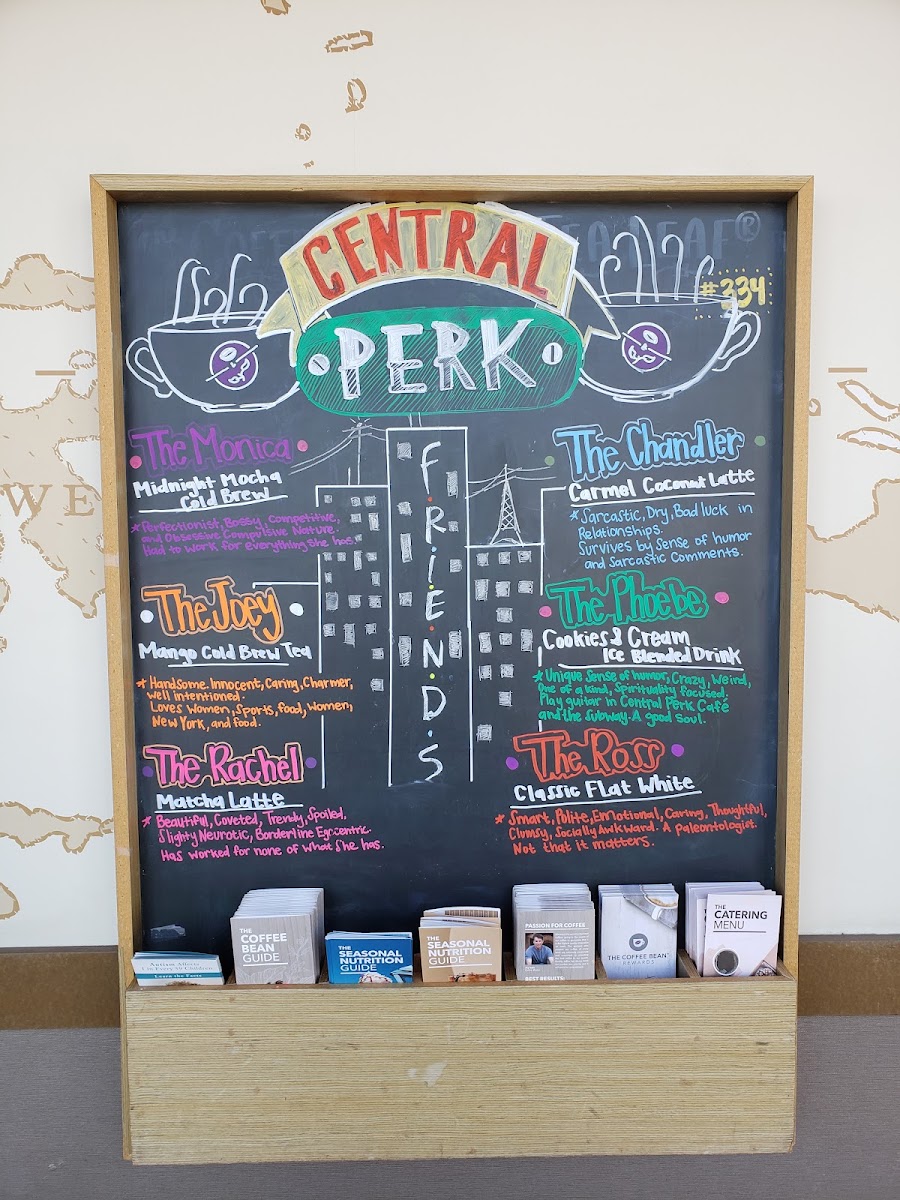 CENTRAL
PERK
#334
F.R.I.E.N.D.S
The Monica
Midnight Mocha
Cold Brew
*Perfectionist, Bossy, Competitive,
and Obsessive Compulsive Nature.
Had to work for everything she has.
The Joey
Mango Cold Brew Tea
* Handsome. Innocent, Caring, Charmer,
well intentioned.
Loves Women, Sports, food, Women,
New York, and food.
The Rachel
Matcha Latte
* Beautiful, Coveted, Trendy, Spoiled,
Slighty Neurotic, Borderline Egocentric.
Has worked for none of what she has.
The Chandler
Carmel Coconut Latte
*Sarcastic, Dry, Bad luck in
Relationships.
Survives by Sense of humor
and Sarcastic Comments.
The Phoebe
Cookies & Cream
Ice Blended Drink
*Unique sense of humor, Crazy, Weird,
One of a kind, Spirituality focused.
Play guitar in Central Perk Café
and the subway. A good soul.
The Ross
Classic Flat White
*Smart, Polite, Emotional, Caring, Thoughtful,
Clumsy, Socially Awkward. A paleontologist.
Not that it matters.
WE
Autism Affects
1 in Every 59 Children
Learn the Facts
THE
COFFEE
BEAN
GUIDE
THE
SEASONAL
NUTRITION
GUIDE
THE
SEASONAL
NUTRITION
GUIDE
PASSION FOR COFFEE
BEST RESULTS:
THE COFFEE BEAN
REWARDS
THE
CATERING
MENU